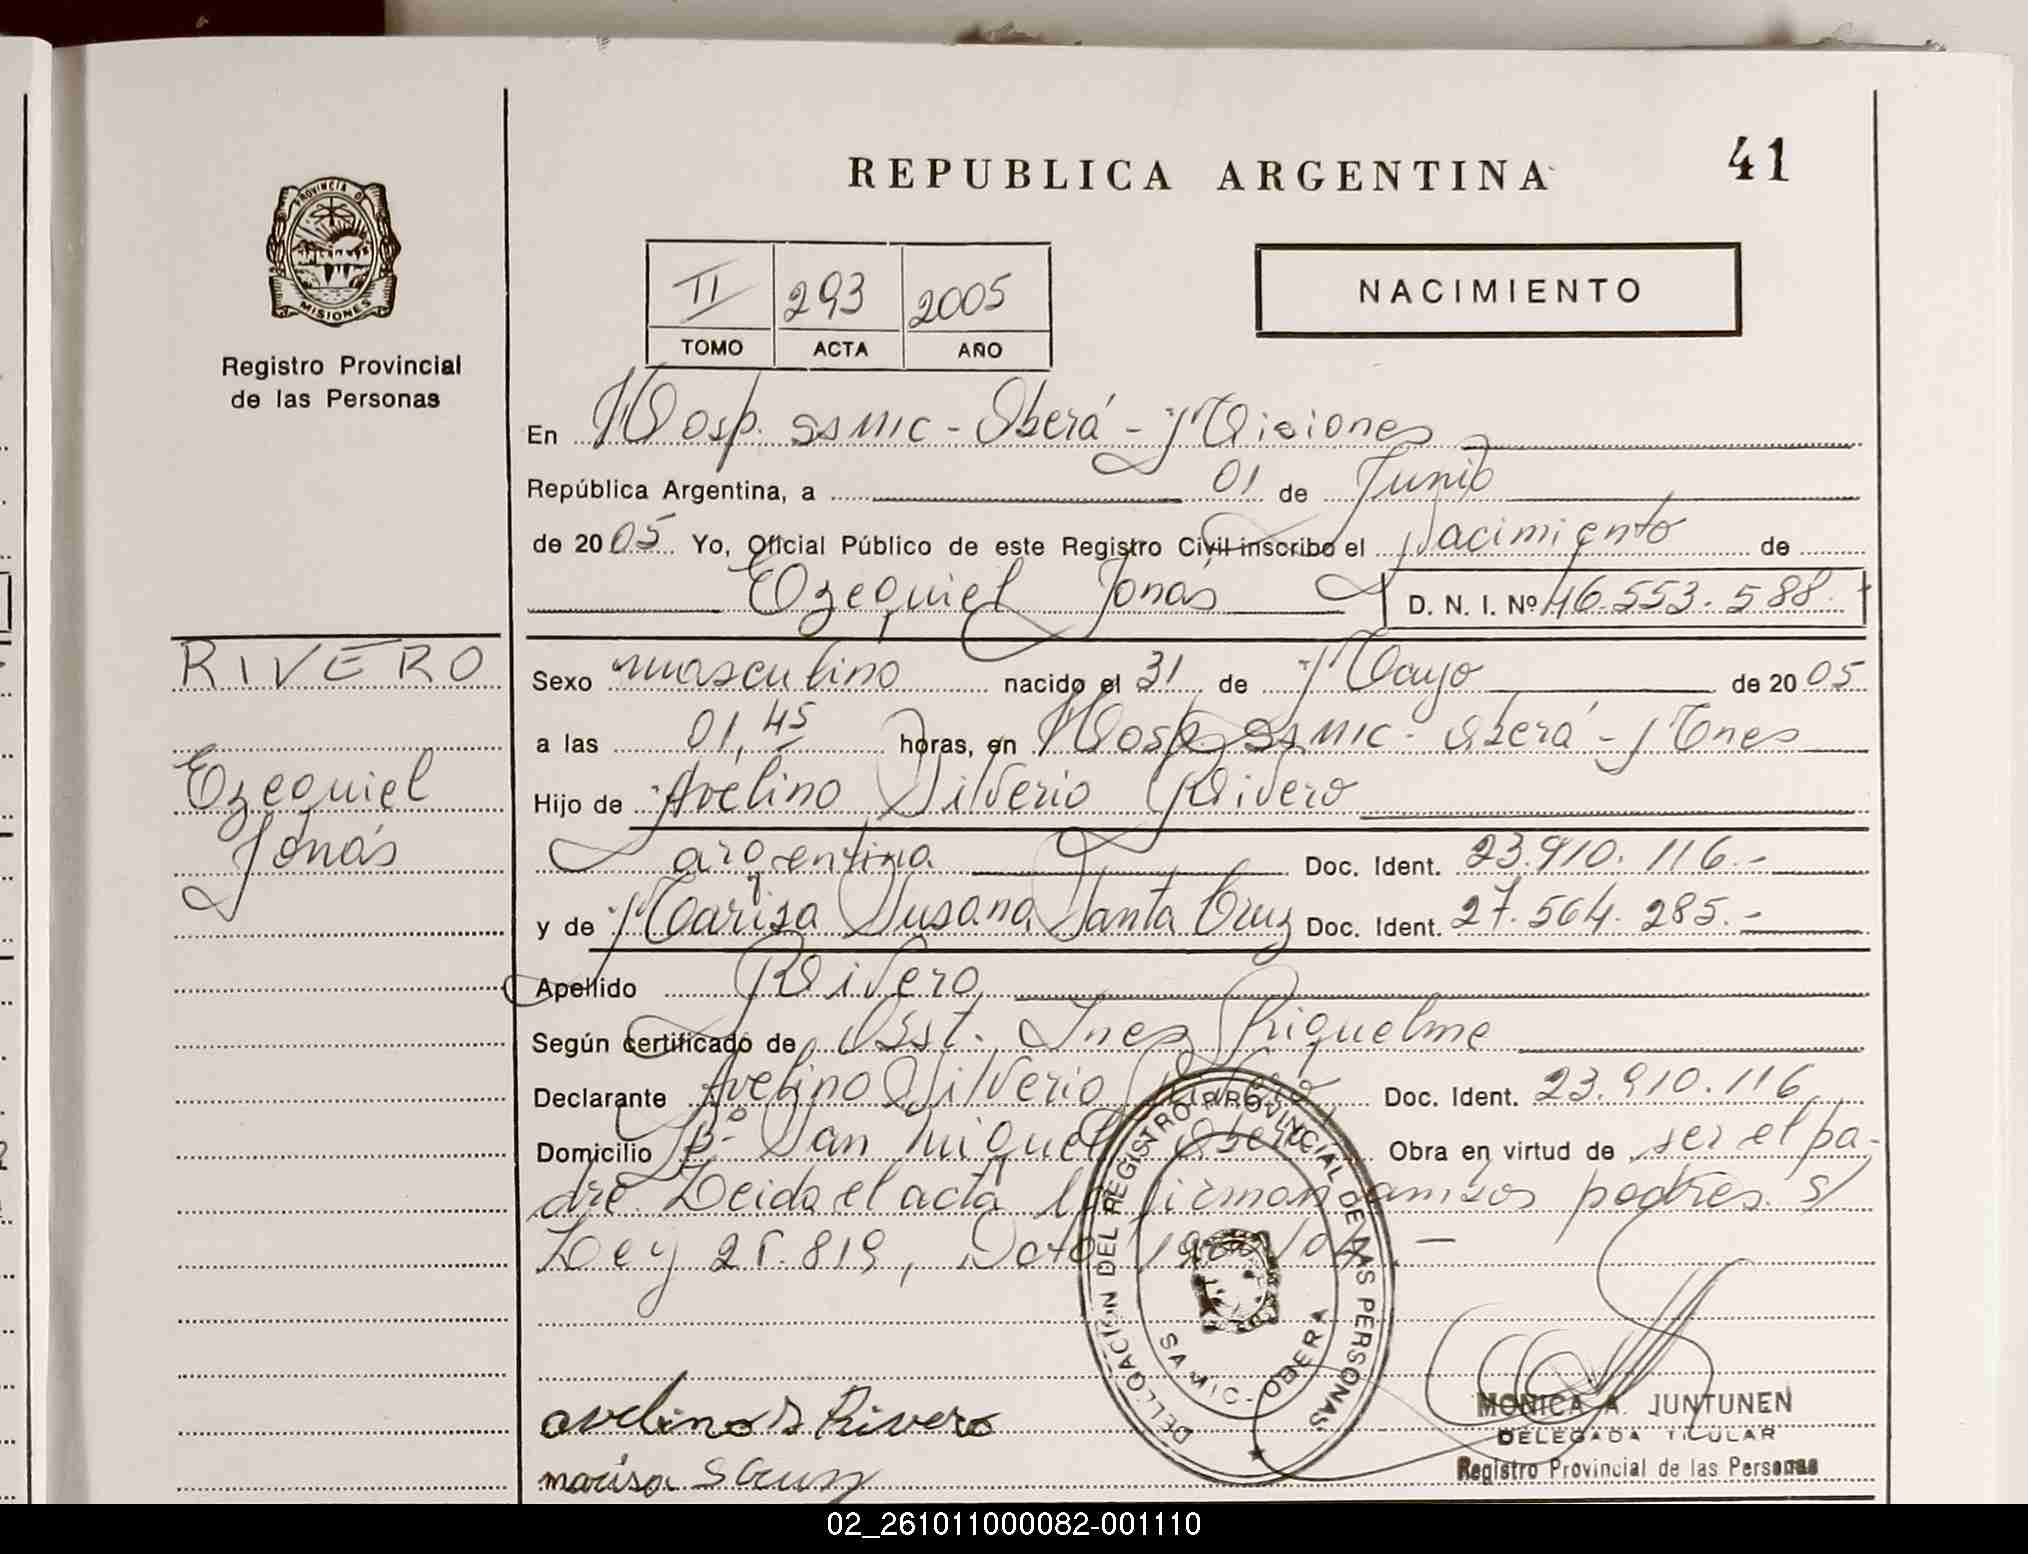 41
REPUBLICA ARGENTINA
PROVINCIA DE
MISIONES
Registro Provincial
de las Personas
II 293 2005
TOMO ACTA AÑO
NACIMIENTO
En Hosp. SSMIC - Oberá - Misiones
República Argentina, a 01 de Junio
de 2005 Yo, Oficial Público de este Registro Civil inscribo el Nacimiento de
Ezequiel Jonás D. N. I. Nº 46.553.588.
RIVERO
Ezequiel
Jonás
Sexo masculino nacido el 31 de Mayo de 2005
a las 01,45 horas, en Hosp. SSMIC - Oberá - Mnes
Hijo de Avelino Silverio Rivero
argentina Doc. Ident. 23.910.116.-
y de Marisa Susana Santa Cruz Doc. Ident. 27.564.285.-
Apellido Rivero
Según certificado de Obst. Ines Riquelme
Declarante Avelino Silverio Rivero Doc. Ident. 23.910.116
Domicilio Bº San Miguel Oberá Obra en virtud de ser el pa-
dre. Leida el acta la firman ambos padres s/
Ley 25.819,
DELEGACION DEL REGISTRO PROVINCIAL DE LAS PERSONAS
SAMIC - OBERA
avelino S Rivero
marisa S Cruz
MONICA A. JUNTUNEN
DELEGADA TITULAR
Registro Provincial de las Personas
02_261011000082-001110